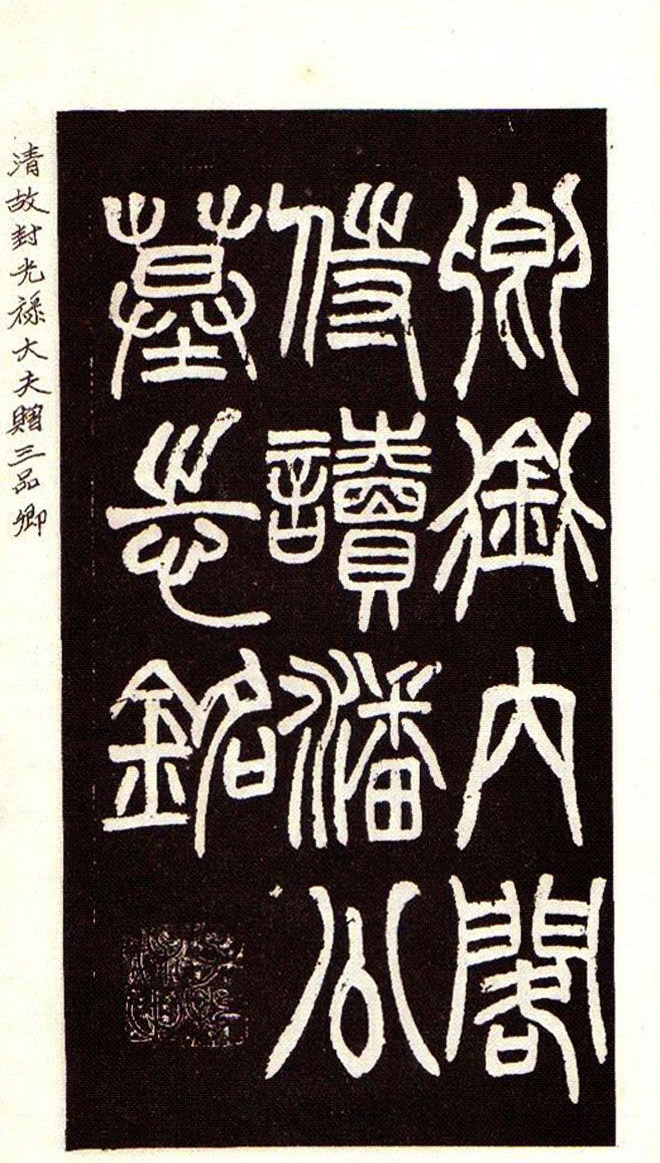 卿銜内閣
侍讀潘公
墓志銘
清故封光祿大夫贈三品卿